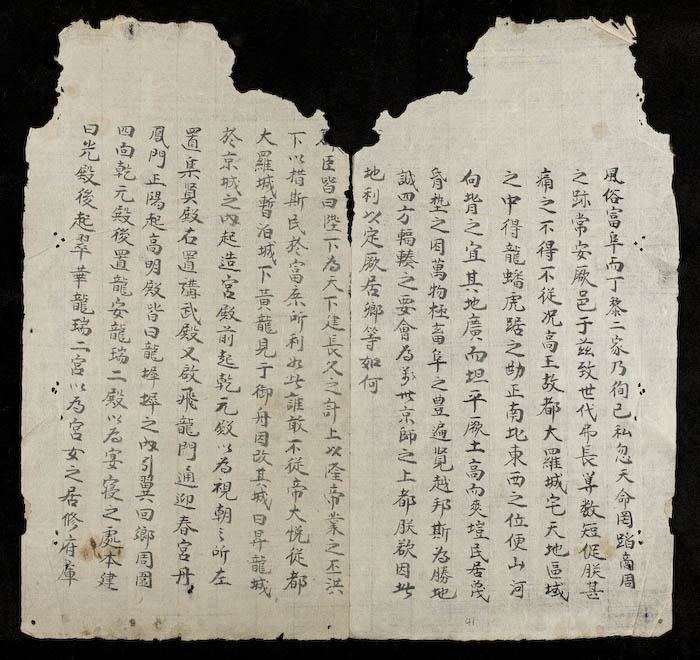 風俗富阜而丁黎二家乃徇己私忽天命罔蹈啇周
之跡常安厥邑于兹致世代弗長算数短促朕甚
痛之不得不從况高王教都大羅城宅天地區域
之中得龍蟠虎踞之勢正南北東西之位便山河
向背之宜其地廣而坦平厥土高而爽塏民居蔑
昏墊之困萬物極畜阜之豊遍覧越邦斯為勝地
誠四方輻輳之要會為萬世京師之上都朕欲因此
地利以定厥居鄉等如何
臣皆曰陛下為天下建長久之計上以隆帝業之丕洪
下以措斯民於富庶所利如此誰敢不從帝大悅從都
大羅城暫泊城下黃龍見于御舟因改其城曰昇龍城
於京城之內起造宮殿前起乾元殿以為視朝之所左
置集賢殿右置講武殿又啟飛龍門通迎春宮丹
鳳門正陽起高明殿皆曰龍墀墀之內引翼回鄉周圍
四向乾元殿後置龍安龍瑞二殿以為安寢之處本建
日光殿後起翠華龍瑞二宮以為宮女之居修府庫
41